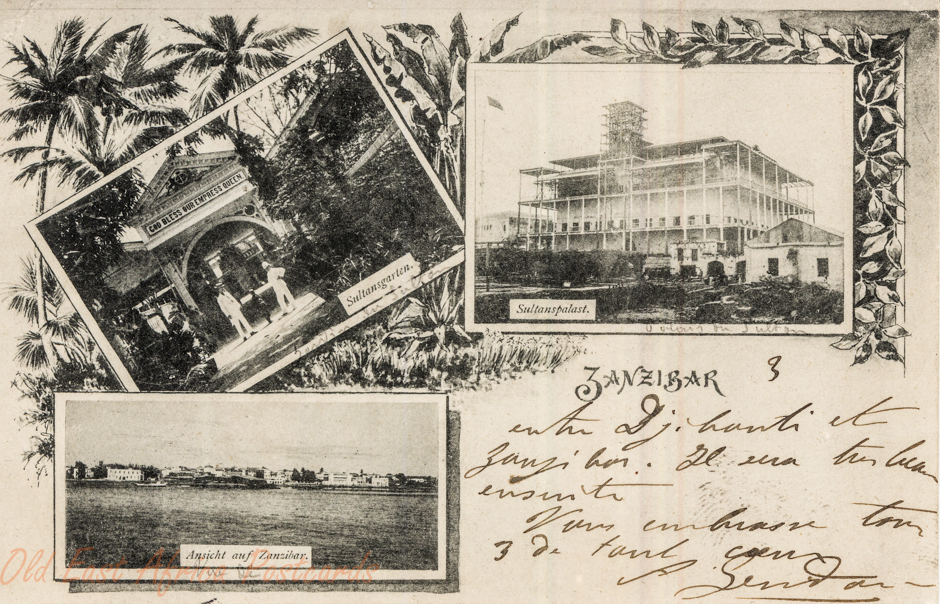 GOD BLESS OUR EMPRESS QUEEN.
Sultansgarten.
Sultanspalast.
Palais du Sultan
ZANZIBAR 3
entre Djibouti et
Zanzibar. Il sera très beau
ensuite
Vous embrasse tous
3 de tout cœur
Ansicht auf Zanzibar.
Old East Africa Postcards